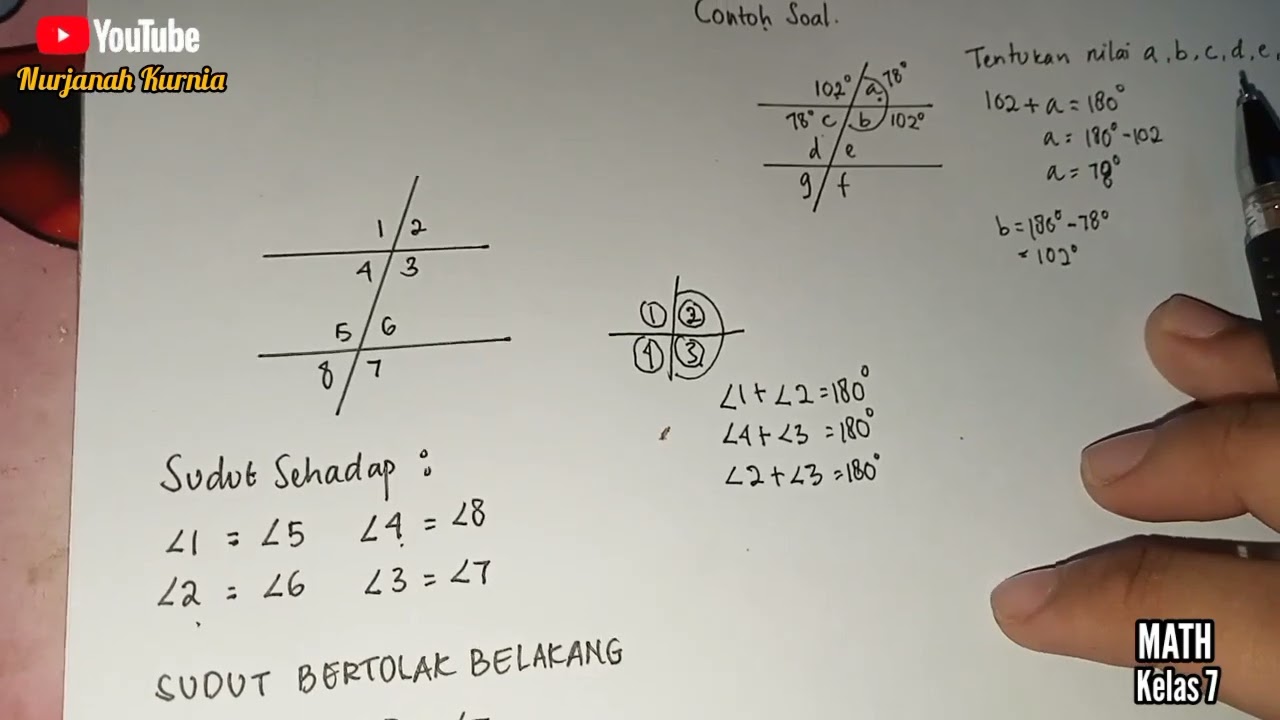 YouTube
Nurjanah Kurnia
Contoh Soal.
Tentukan nilai a, b, c, d, e,
102° a 78°
78° c b 102°
d e
g f
102 + a = 180°
a = 180° - 102
a = 78°
b = 180° - 78°
= 102°
1 2
4 3
5 6
8 7
1 2
4 3
∠1 + ∠2 = 180°
∠4 + ∠3 = 180°
∠2 + ∠3 = 180°
Sudut Sehadap :
∠1 = ∠5 ∠4 = ∠8
∠2 = ∠6 ∠3 = ∠7
SUDUT BERTOLAK BELAKANG
MATH
Kelas 7